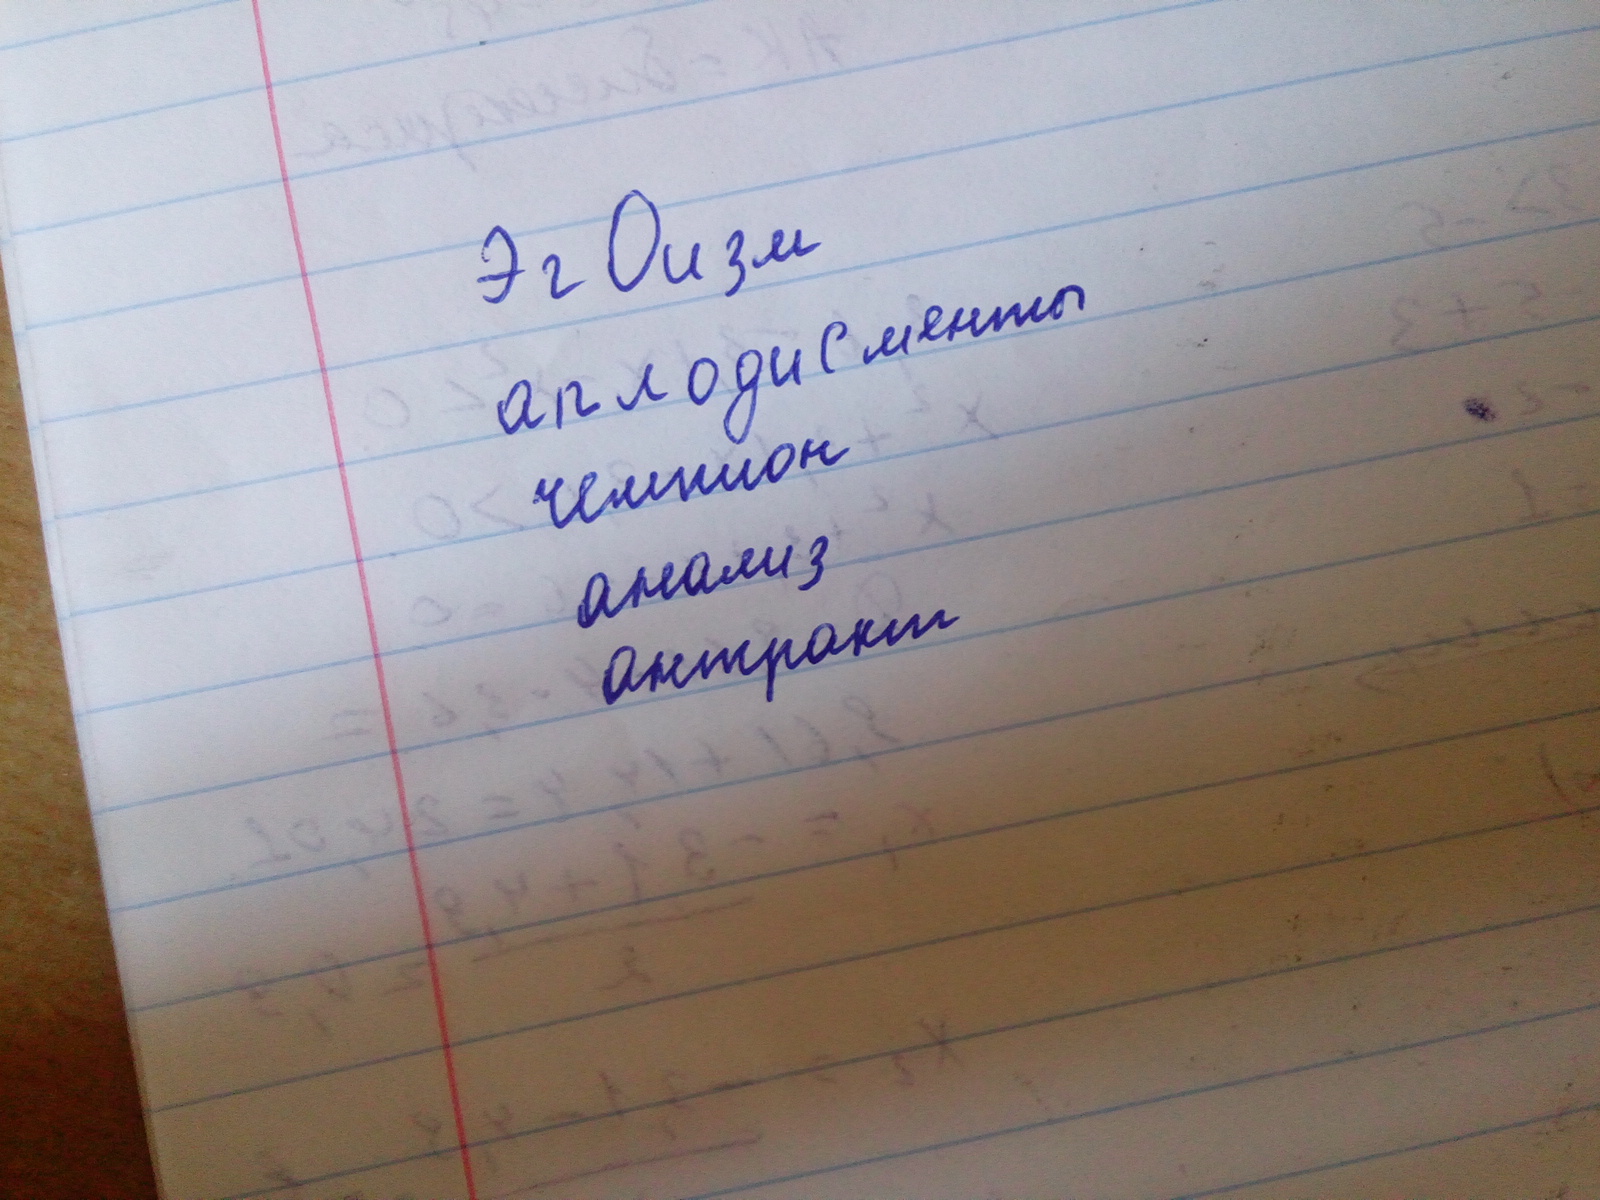 ЭгОизм
аплодисменты
чемпион
анализ
антракт